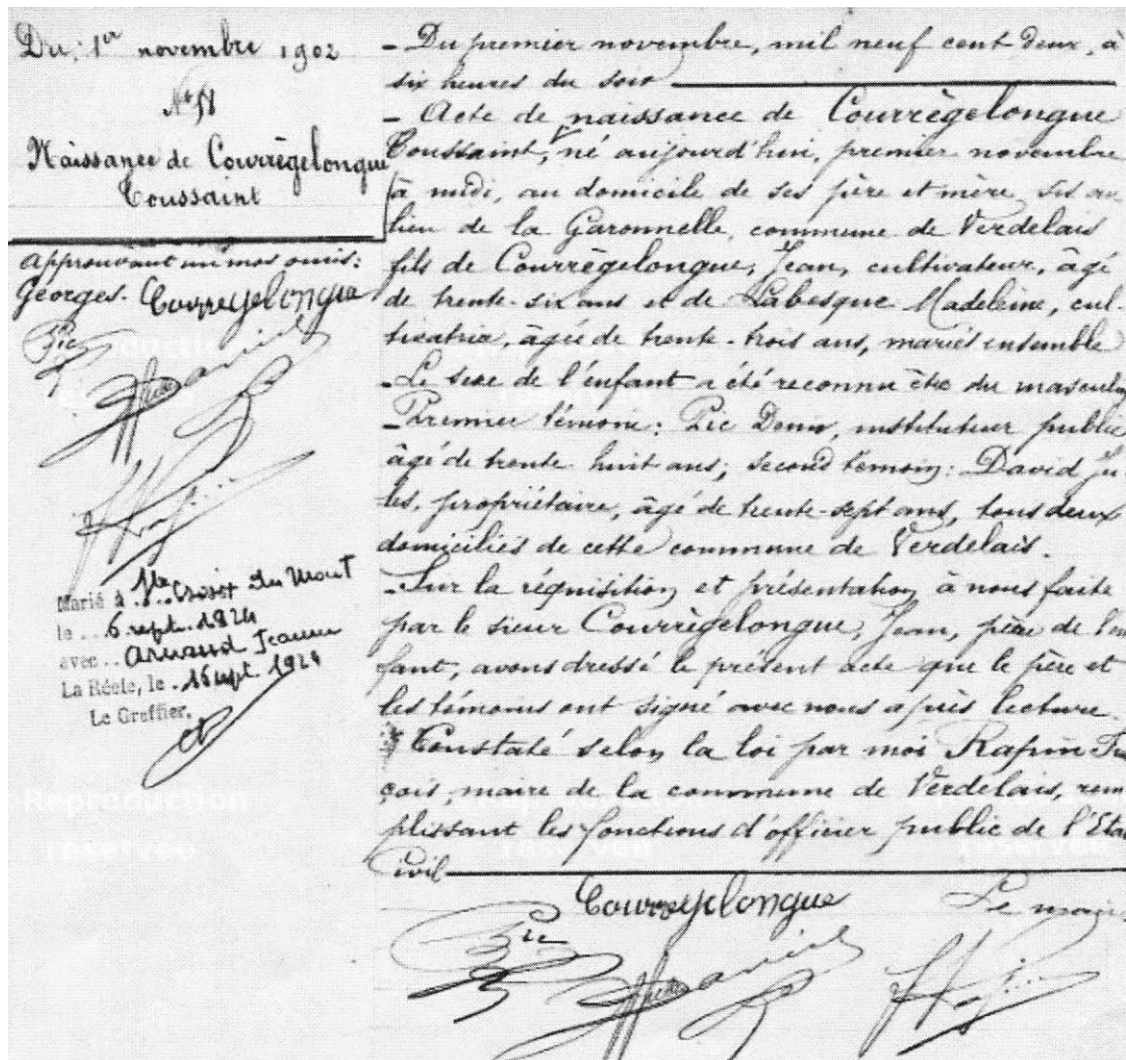 Du 1er novembre 1902
Naissance de Courrègelongue
Toussaint
approuvant un mot omis:
Georges. Courregelongue
Pic
Marié à Ste Croix du Mont
le 6 sept. 1924
avec Arnaud Jeanne
La Réole, le 15 sept 1924
Le Greffier,
- Du premier novembre, mil neuf cent deux, à
six heures du soir
- Acte de naissance de Courrègelongue
Toussaint, né aujourd'hui, premier novembre
à midi, au domicile de ses père et mère sis au
lieu de la Garonnelle, commune de Verdelais
fils de Courrègelongue, Jean, cultivateur, âgé
de trente-six ans et de Labesque Madeleine, cul-
tivatrice, âgée de trente-trois ans, mariés ensemble
- Le sexe de l'enfant a été reconnu être du masculin
- Premier témoin: Pic, instituteur public
âgé de trente huit ans; second témoin: David Ju-
les, propriétaire, âgé de trente-sept ans, tous deux
domiciliés de cette commune de Verdelais.
- Sur la réquisition et présentation à nous faite
par le sieur Courrègelongue, Jean, père de l'en
fant, avons dressé le présent acte que le père et
les témoins ont signé avec nous après lecture.
Constaté selon la loi par moi Rapin Fran
çois, maire de la commune de Verdelais, rem
plissant les fonctions d'officier public de l'Etat
Civil
Courregelongue Le maire
Pic
Reproduction
reservee